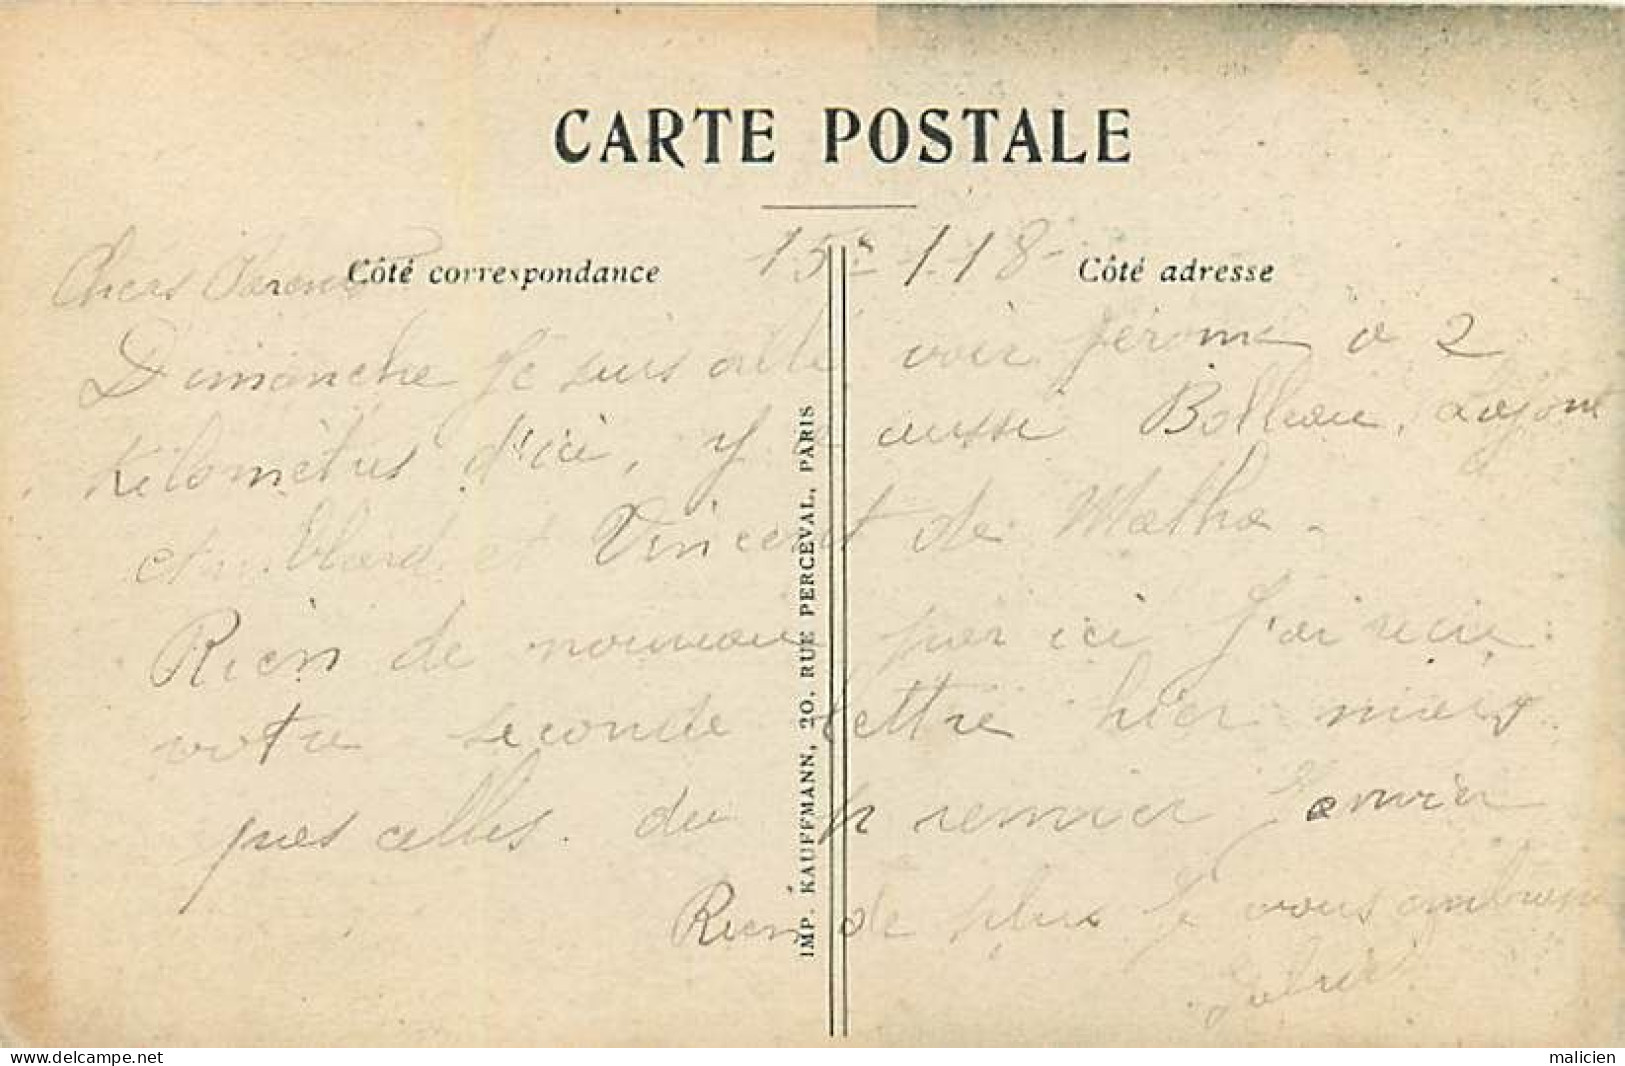 CARTE POSTALE
15 1.18
Côté correspondance
Côté adresse
Chers Parents
Dimanche je suis allé voir Jérome a 2
kilomètres d'ici, y a aussi Lafont
et et Vincent de Matha -
Rien de nouveau par ici J'ai recu
votre seconde lettre hier mais
pas celles. du premier Janvier
Rien de plus Je vous embrasse
Gabriel
IMP. KAUFFMANN, 20, RUE PERCEVAL, PARIS
delcampe.net
malicien